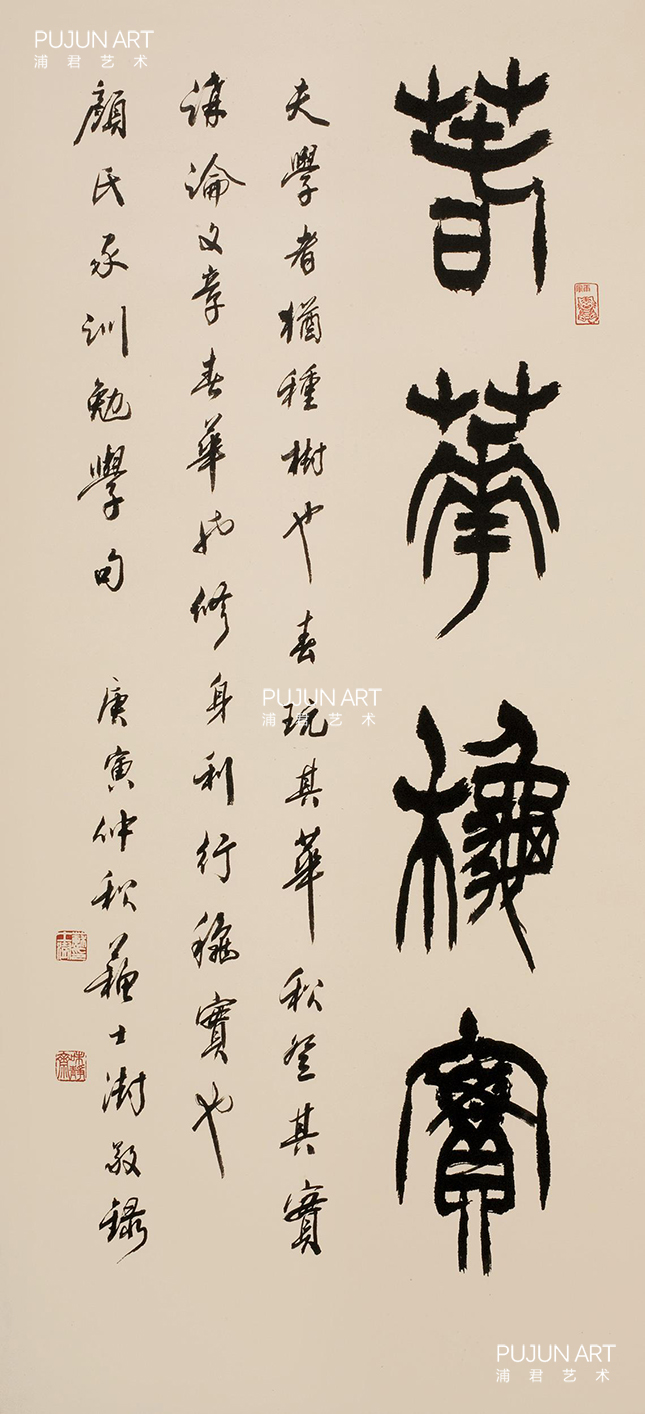 春華穐實
夫學者猶種樹也春玩其華秋登其實
講論文章春華也修身利行穐實也
顏氏家訓勉學句 庚寅仲秋蘇士澍敬錄
PUJUN ART
浦君艺术
PUJUN ART
浦君艺术
PUJUN ART
浦君艺术